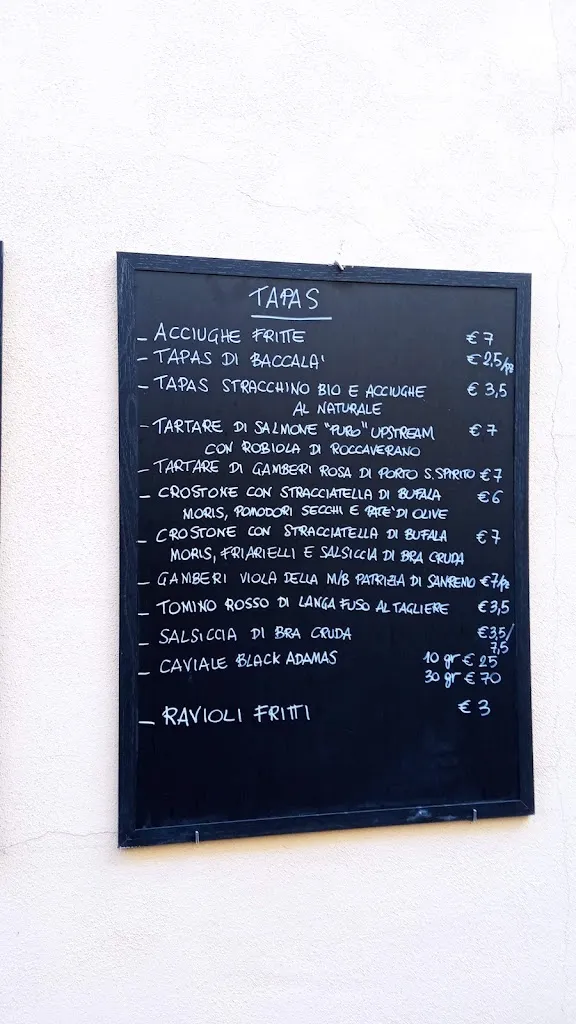 TAPAS
_ ACCIUGHE FRITTE €7
- TAPAS DI BACCALA' €2,5/pz
- TAPAS STRACCHINO BIO E ACCIUGHE €3,5
AL NATURALE
- TARTARE DI SALMONE "PURO" UPSTREAM €7
CON ROBIOLA DI ROCCAVERANO
- TARTARE DI GAMBERI ROSA DI PORTO S.SPIRITO €7
- CROSTONE CON STRACCIATELLA DI BUFALA €6
MORIS, POMODORI SECCHI E PATE' DI OLIVE
- CROSTONE CON STRACCIATELLA DI BUFALA €7
MORIS, FRIARIELLI E SALSICCIA DI BRA CRUDA
- GAMBERI VIOLA DELLA M/B PATRIZIA DI SANREMO €7/pz
- TOMINO ROSSO DI LANGA FUSO AL TAGLIERE €3,5
- SALSICCIA DI BRA CRUDA €3,5/
7,5
- CAVIALE BLACK ADAMAS 10 gr €25
30 gr €70
_ RAVIOLI FRITTI €3